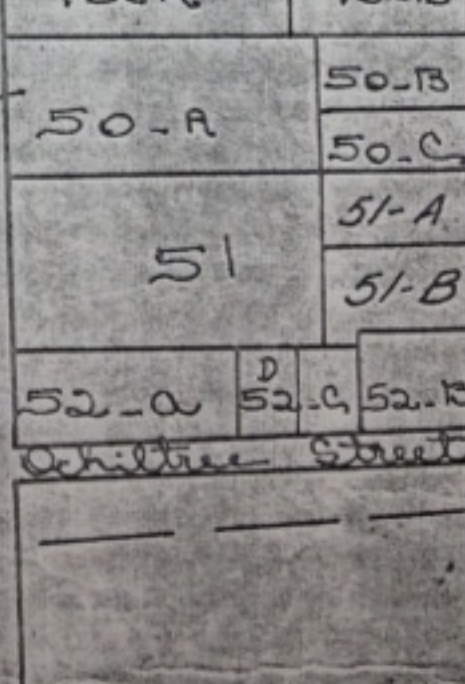 50-B
50-A
50-C
51-A
51
51-B
D
52-a 52-C 52-B
Ochiltree Street